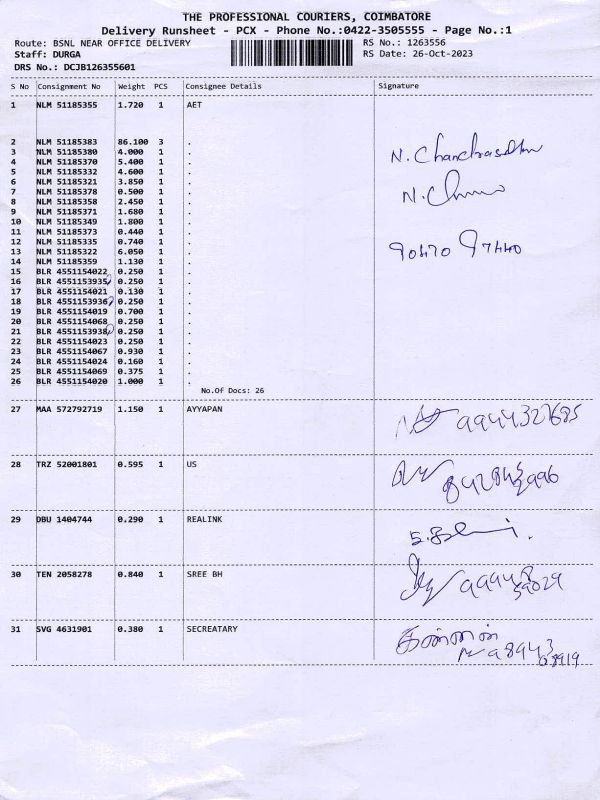 THE PROFESSIONAL COURIERS, COIMBATORE
Delivery Runsheet - PCX - Phone No.:0422-3505555 - Page No.:1
Route: BSNL NEAR OFFICE DELIVERY RS No.: 1263556
Staff: DURGA RS Date: 26-Oct-2023
DRS No.: DCJB126355601
S No Consignment No Weight PCS Consignee Details Signature
1 NLM 51185355 1.720 1 AET
2 NLM 51185383 86.100 3 .
3 NLM 51185380 4.000 1 .
4 NLM 51185370 5.400 1 .
5 NLM 51185332 4.600 1 .
6 NLM 51185321 3.850 1 .
7 NLM 51185378 0.500 1 .
8 NLM 51185358 2.450 1 .
9 NLM 51185371 1.680 1 .
10 NLM 51185349 1.800 1 .
11 NLM 51185373 0.440 1 .
12 NLM 51185335 0.740 1 .
13 NLM 51185322 6.050 1 .
14 NLM 51185359 1.130 1 .
15 BLR 4551154022 0.250 1 .
16 BLR 4551153935 0.250 1 .
17 BLR 4551154021 0.130 1 .
18 BLR 4551153936 0.250 1 .
19 BLR 4551154019 0.700 1 .
20 BLR 4551154068 0.250 1 .
21 BLR 4551153938 0.250 1 .
22 BLR 4551154023 0.250 1 .
23 BLR 4551154067 0.930 1 .
24 BLR 4551154024 0.160 1 .
25 BLR 4551154069 0.375 1 .
26 BLR 4551154020 1.000 1 .
No.Of Docs: 26
90470 97440
27 MAA 572792719 1.150 1 AYYAPAN 9944327685
28 TRZ 52001801 0.595 1 US
29 DBU 1404744 0.290 1 REALINK
30 TEN 2058278 0.840 1 SREE BH
31 SVG 4631901 0.380 1 SECREATARY கண்ணன்